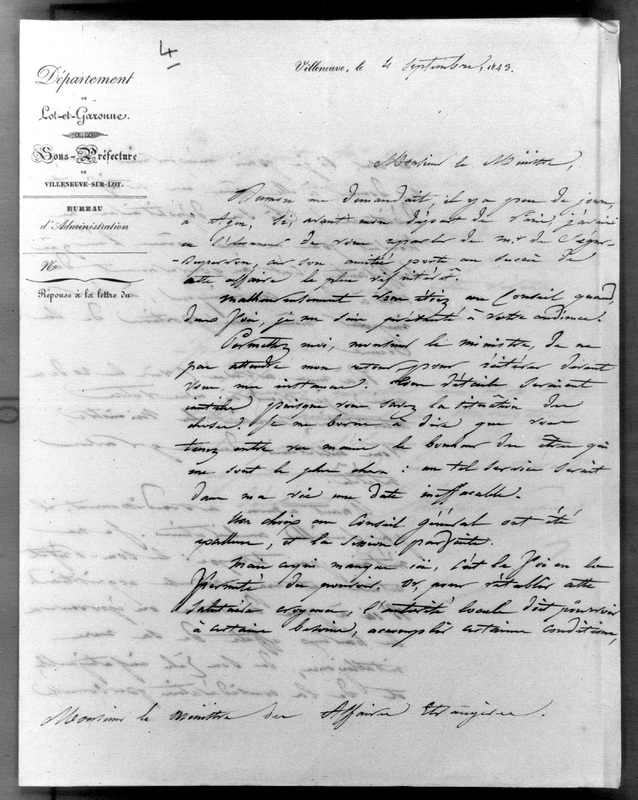 4
Département
DE
Lot-et-Garonne.
Sous-Préfecture
DE
VILLENEUVE-SUR-LOT.
BUREAU
d'Administration
N°
Réponse à la lettre du
Villeneuve, le 4 septembre, 1843.
Monsieur le Ministre,
me demandait, il y a peu de jours,
à Agen, si, avant mon départ de Paris, j'avais
eu l'honneur de vous reparler de mr. de Ségur-
, car son amitié porte au succès de
cette affaire le plus vif intérêt.
Malheureusement vous étiez au Conseil quand,
deux fois, je me suis présenté à votre audience.
Permettez moi, monsieur le ministre, de ne
pas attendre mon retour pour réitérer devant
vous mes instances. Les détails seraient
inutiles puisque vous savez la situation des
choses. Je me borne à dire que vous
tenez entre vos mains le bonheur des êtres qui
me sont le plus chers : un tel service serait
dans ma vie une date ineffaçable.
Les choix au Conseil général ont été
excellens, et la session parfaite.
Mais ce qui manque ici, c'est la foi en la
fermeté du pouvoir. Or, pour rétablir cette
salutaire croyance, l'autorité locale doit pourvoir
à certains besoins, accomplir certaines conditions,
Monsieur le Ministre des Affaires Etrangères.